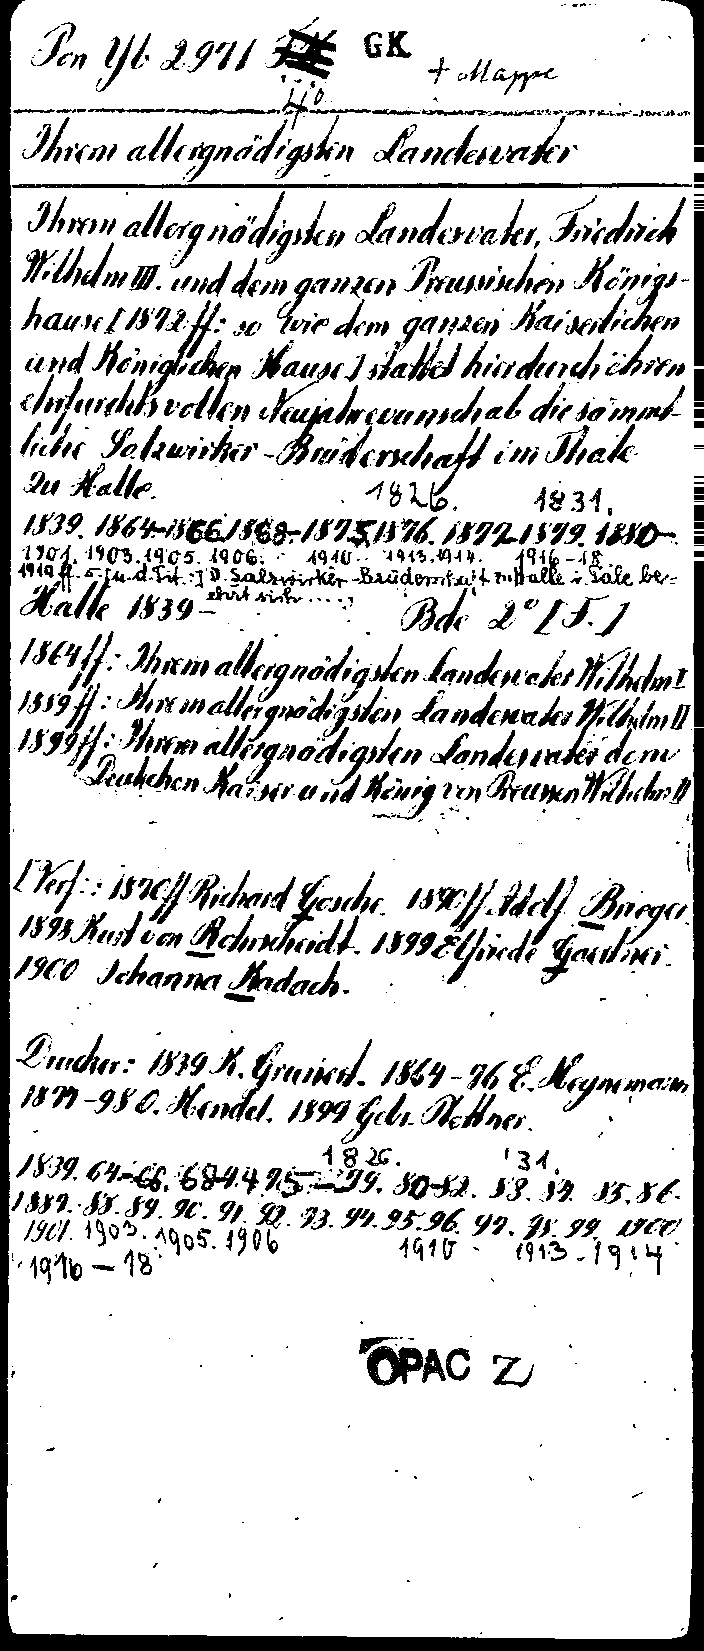 Pon Yb 2971 GK
+ Mappe
4°
Ihrem allergnädigsten Landesvater
Ihrem allergnädigsten Landesvater, Friedrich
Wilhelm III. und dem ganzen Preussischen Königs-
hause [1872 ff: so wie dem ganzen Kaiserlichen
und Königlichen Hause] stattet hierdurch ihren
ehrfurchtsvollen Neujahrswunsch ab die sämmt-
liche Salzwirker-Brüderschaft im Thale
zu Halle.
1826. 1831.
1839. 1864-1866. 1868-1875, 1876. 1877-1879. 1880-
1901. 1903. 1905. 1906. 1910 1913. 1914. 1916-18
1919 ff. u. d. Tit.: D. Salzwirker-Brüderschaft zu Halle a. Sale be-
ehrt sich ....]
Halle 1839- Bde 2° [F.]
1864 ff: Ihrem allergnädigsten Landesvater Wilhelm I
1889 ff: Ihrem allergnädigsten Landesvater Wilhelm II
1899 ff: Ihrem allergnädigsten Landesvater dem
Deutschen Kaiser und König von Preussen Wilhelm II
[Verf.: 1870 ff Richard Gosche. 1890 ff. Adolf Brieger.
1898 Kurt von Rohrscheidt. 1899 Elfriede Gaertner.
1900 Johanna Kadach.
Drucker: 1839 K. Grunert. 1864-76 E. Heynemann
1877-98 O. Hendel. 1899 Gebr. Plettner.
1826. '31.
1839. 64-66. 68-74. 75-79. 80-82. 83. 84. 85. 86.
1887. 88. 89. 90. 91. 92. 93. 94. 95. 96. 97. 98. 99. 1900
1901. 1903. 1905. 1906 1910 1913-1914
1916-18
OPAC Z